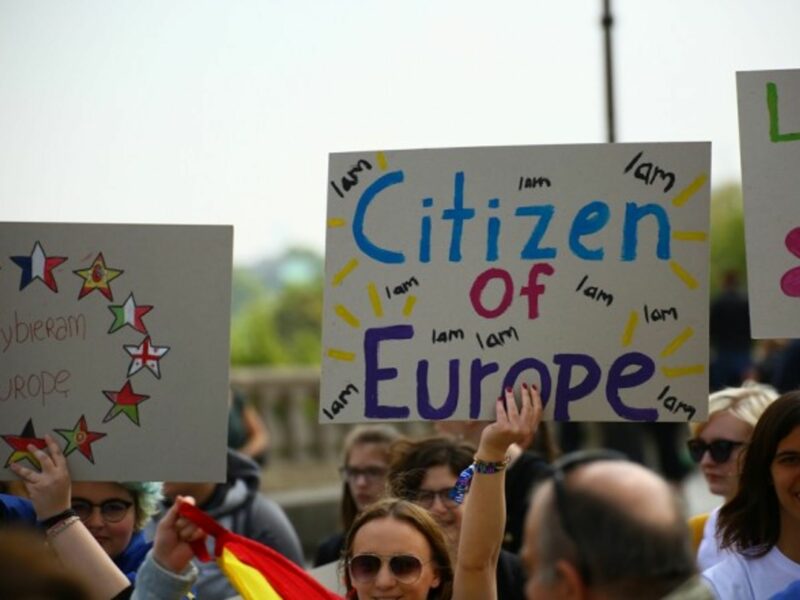 ybieram
urope
I am
I am
I am
Citizen
of
I am
I am
I am
I am
I am
Europe
I am
I am
L